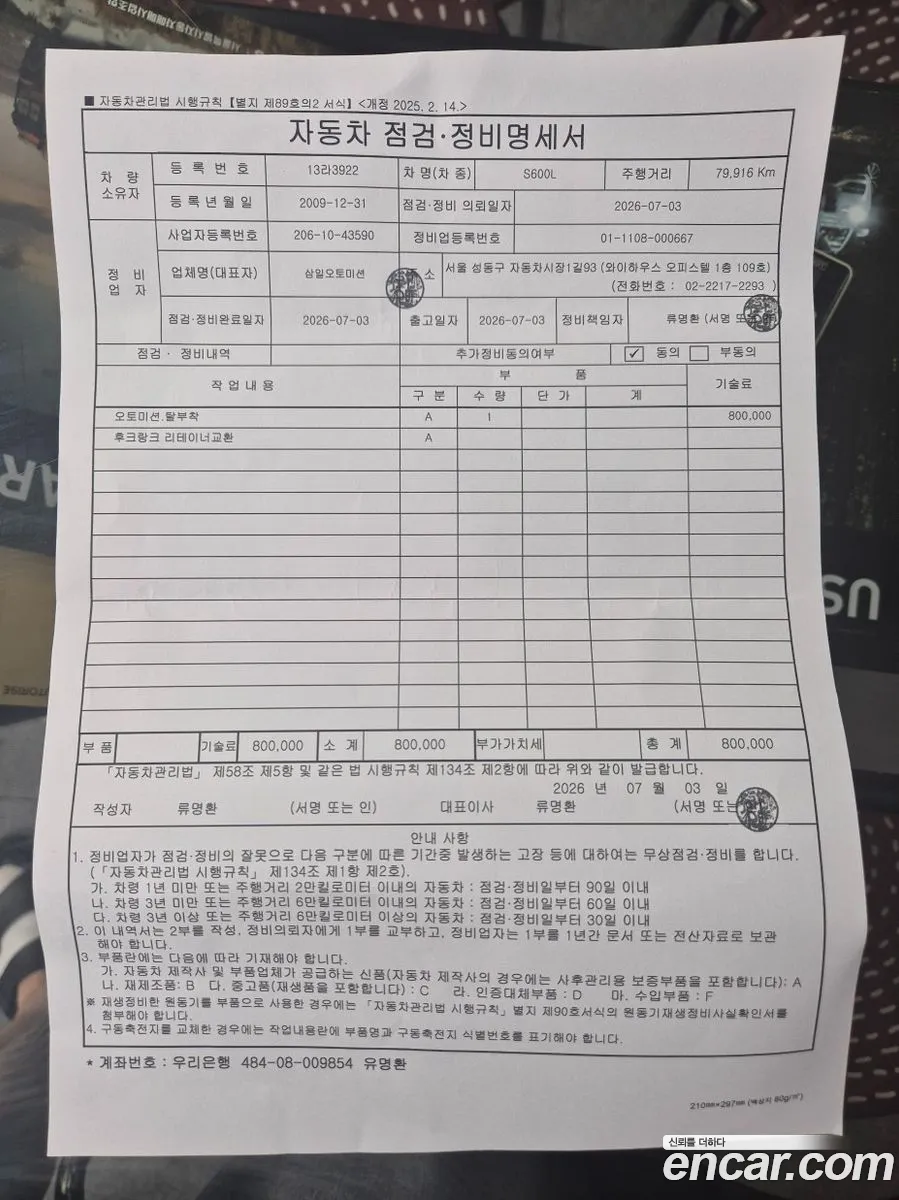 ■ 자동차관리법 시행규칙【별지 제89호의2 서식】<개정 2025. 2. 14.>
자동차 점검·정비명세서
차 량 소유자
등 록 번 호 13라3922 차 명(차 종) S600L 주행거리 79,916 Km
등 록 년 월 일 2009-12-31 점검·정비 의뢰일자 2026-07-03
정 비 업 자
사업자등록번호 206-10-43590 정비업등록번호 01-1108-000667
업체명(대표자) 삼일오토미션 소 서울 성동구 자동차시장1길93 (와이하우스 오피스텔 1층 109호)
(전화번호 : 02-2217-2293 )
점검·정비완료일자 2026-07-03 출고일자 2026-07-03 정비책임자 류명환 (서명 또는
점검 · 정비내역 추가정비동의여부 ✓ 동의 부동의
작 업 내 용 부 품 기술료
구 분 수 량 단 가 계
오토미션.탈부착 A 1 800,000
후크랑크 리테이너교환 A
부 품 기술료 800,000 소 계 800,000 부가가치세 총 계 800,000
「자동차관리법」 제58조 제5항 및 같은 법 시행규칙 제134조 제2항에 따라 위와 같이 발급합니다.
2026 년 07 월 03 일
작성자 류명환 (서명 또는 인) 대표이사 류명환 (서명 또는
안내 사항
1. 정비업자가 점검·정비의 잘못으로 다음 구분에 따른 기간중 발생하는 고장 등에 대하여는 무상점검·정비를 합니다.
(「자동차관리법 시행규칙」 제134조 제1항 제2호).
가. 차령 1년 미만 또는 주행거리 2만킬로미터 이내의 자동차 : 점검·정비일부터 90일 이내
나. 차령 3년 미만 또는 주행거리 6만킬로미터 이내의 자동차 : 점검·정비일부터 60일 이내
다. 차령 3년 이상 또는 주행거리 6만킬로미터 이상의 자동차 : 점검·정비일부터 30일 이내
2. 이 내역서는 2부를 작성, 정비의뢰자에게 1부를 교부하고, 정비업자는 1부를 1년간 문서 또는 전산자료로 보관
해야 합니다.
3. 부품란에는 다음에 따라 기재해야 합니다.
가. 자동차 제작사 및 부품업체가 공급하는 신품(자동차 제작사의 경우에는 사후관리용 보증부품을 포함합니다): A
나. 재제조품: B 다. 중고품(재생품을 포함합니다) : C 라. 인증대체부품 : D 마. 수입부품 : F
※ 재생정비한 원동기를 부품으로 사용한 경우에는 「자동차관리법 시행규칙」별지 제90호서식의 원동기재생정비사실확인서를
첨부해야 합니다.
4. 구동축전지를 교체한 경우에는 작업내용란에 부품명과 구동축전지 식별번호를 표기해야 합니다.
* 계좌번호 : 우리은행 484-08-009854 유명환
210㎜×297㎜ (백상지 80g/㎡)
신뢰를 더하다
encar.com